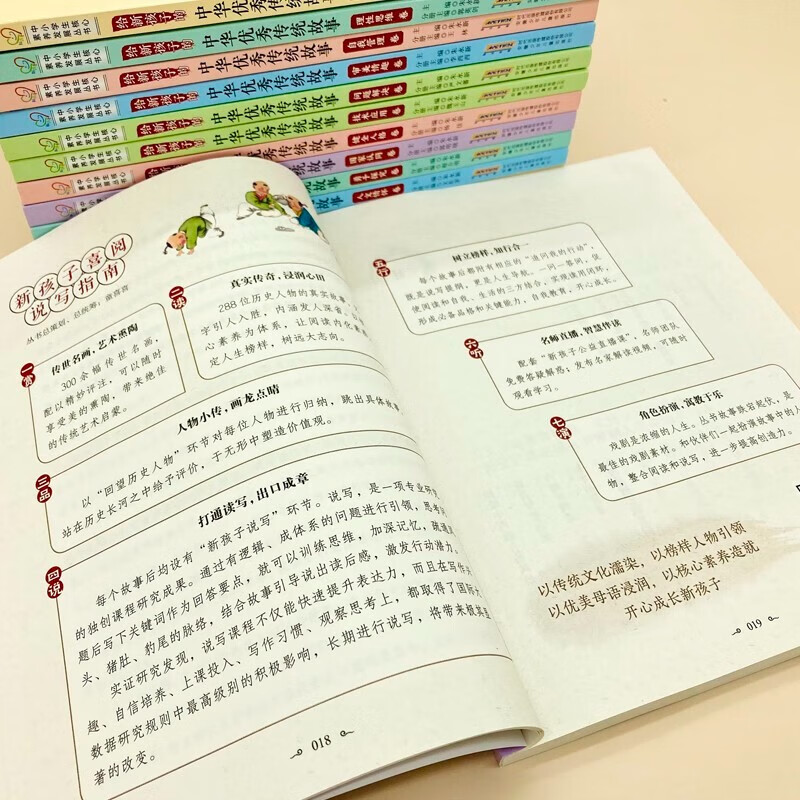 给新孩子的
中华优秀传统故事
理性思维 卷
给新孩子的
中华优秀传统故事
自我管理 卷
给新孩子的
中华优秀传统故事
审美情趣 卷
给新孩子的
中华优秀传统故事
问题解决 卷
给新孩子的
中华优秀传统故事
技术应用 卷
健全人格 卷
国家认同 卷
勇于探究 卷
人文情怀 卷
新孩子喜阅
说写指南
丛书总策划、总统筹：童喜喜
一赏
传世名画，艺术熏陶
300余幅传世名画，
配以精妙评注，可以随时
享受美的熏陶，带来绝佳
的传统艺术启蒙。
二读
真实传奇，浸润心田
288位历史人物的真实故事，
字引人入胜，内涵发人深省。以
心素养为体系，让阅读内化素
定人生榜样，树远大志向。
三品
人物小传，画龙点睛
以“回望历史人物”环节对每位人物进行归纳，跳出具体故事
站在历史长河之中给予评价，于无形中塑造价值观。
四说
打通读写，出口成章
每个故事后均设有“新孩子说写”环节。说写，是一项专业研究
的独创课程研究成果。通过有逻辑、成体系的问题进行引领，思考
题后写下关键词作为回答要点，就可以训练思维，加深记忆，疏通
头、猪肚、豹尾的脉络，结合故事引导说出读后感，激发行动潜力。
实证研究发现，说写课程不仅能快速提升表达力，而且在写作
趣、自信培养、上课投入、写作习惯、观察思考上，都取得了国际大
数据研究规则中最高级别的积极影响，长期进行说写，将带来极其显
著的改变。
018
五行
树立榜样，知行合一
每个故事后都附有相应的“追问我的行动”，
既是说写提纲，更是人生导航。一问一答间，促
使阅读和自我、生活的三方结合，实现读用闭环，
形成必备品格和关键能力，自我教育，开心成长。
六听
名师直播，智慧伴读
配套“新孩子公益直播课”，名师团队
免费答疑解惑；发布名家解读视频，可随时
观看学习。
七演
角色扮演，寓教于乐
戏剧是浓缩的人生。丛书故事跌宕起伏，是
最佳的戏剧素材。和伙伴们一起扮演故事中的人
物，整合阅读和说写，进一步提高创造力。
以传统文化濡染，以榜样人物引领
以优美母语浸润，以核心素养造就
开心成长新孩子
019